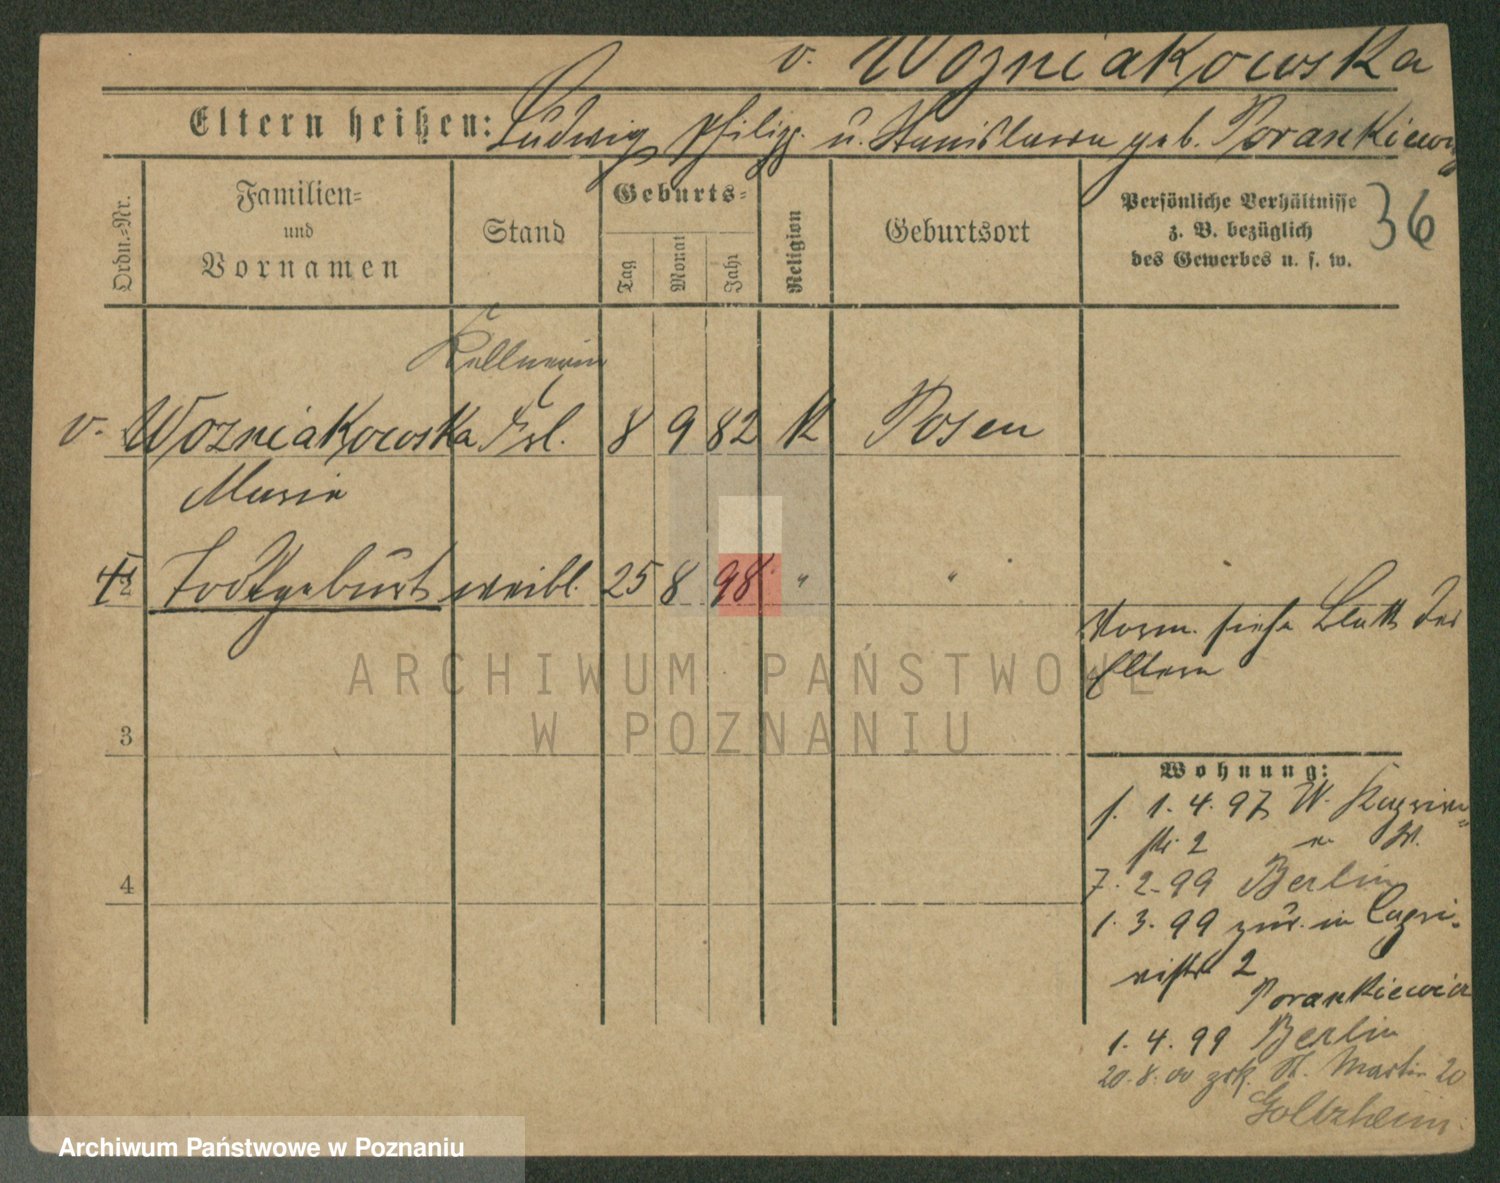 v. Wozniakowska
Eltern heißen: Ludwig Philipp. u. Stanislawa geb. Porankiewicz
Ordn.-Nr.
Familien-
und
Vornamen
Stand
Geburts-
Tag
Monat
Jahr
Religion
Geburtsort
Persönliche Verhältnisse
z. B. bezüglich
des Gewerbes u. s. w.
36
Kellnerin
v. Wozniakowska Frl. 8 9 82 K Posen
Maria
2 Todtgeburt weibl. 25 8 98 " "
Vorm. siehe Blatt der
Eltern
ARCHIWUM PAŃSTWOWE
W POZNANIU
3
Wohnung:
1. 4. 97 W.
str. 2
4
7. 2. 99 Berlin
1. 3. 99 zur. in Capri-
vistr. 2
Porankiewicz
1. 4. 99 Berlin
20. 8. 00 zrk. St. Martin 20
Goltzheim.
Archiwum Państwowe w Poznaniu